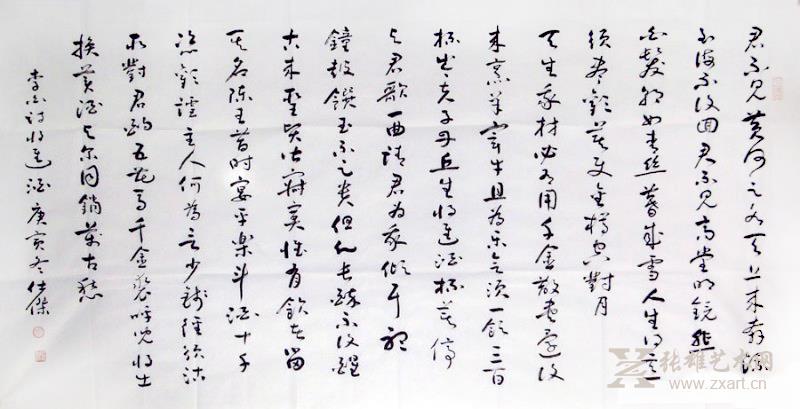 君不见黄河之水天上来奔流
到海不复回君不见高堂明镜悲
白发朝如青丝暮成雪人生得意
须尽欢莫使金樽空對月
天生我材必有用千金散尽还复
来烹羊宰牛且为乐会须一饮三百
杯岑夫子丹丘生将进酒杯莫停
与君歌一曲请君为我倾耳听
鐘鼓馔玉不足贵但愿长醉不復醒
古来圣贤皆寂寞惟有饮者留
其名陈王昔时宴平乐斗酒十千
恣欢谑主人何為言少钱径须沽
取對君酌五花马千金裘呼儿将出
换美酒与尔同销万古愁
李白诗将进酒庚寅冬仕傑
张雄艺术网
www.zxart.cn